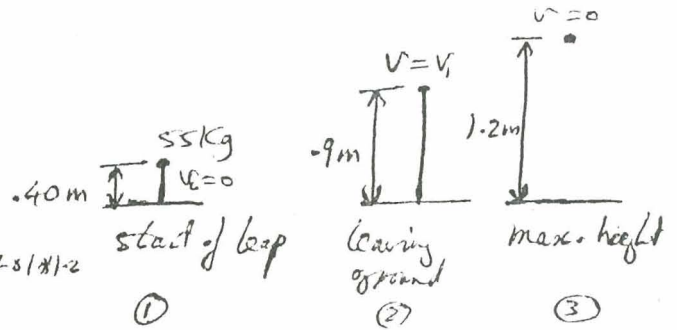 v=0
V=V₁
1.2m
55Kg
.9m
.40m
v=0
start of leap
leaving
ground
max. height
①
②
③